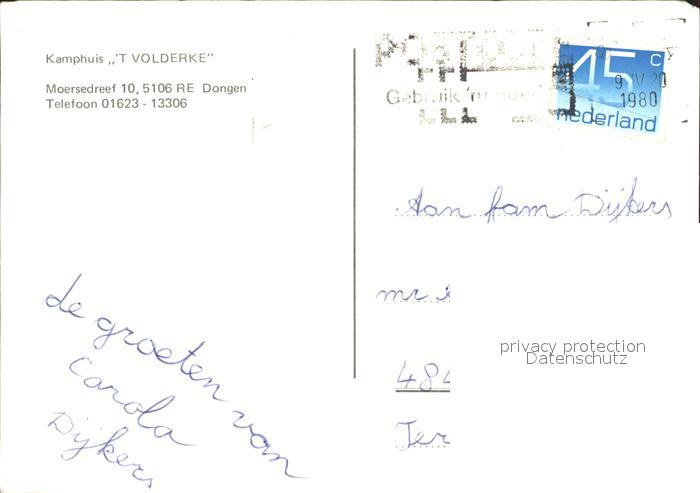 Kamphuis „'T VOLDERKE"
Moersedreef 10, 5106 RE Dongen
Telefoon 01623 - 13306
de groeten van
Carola
Dijkers
Gebruik 'm
45 c
nederland
9 IV 20
1980
Aan fam Dijkers
mr
484
Ter
privacy protection
Datenschutz